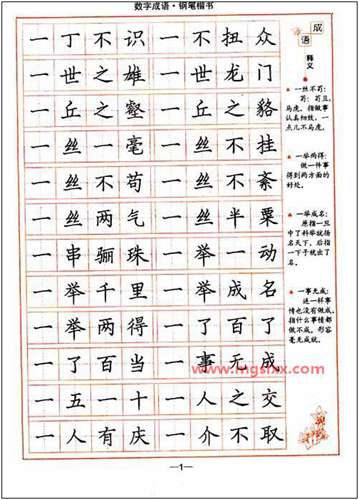 数字成语·钢笔楷书
一丁不识 一不扭众
一世之雄 一世龙门
一丘之壑 一丘之貉
一丝一毫 一丝不挂
一丝不苟 一丝不紊
一丝两气 一丝半粟
一串骊珠 一举一动
一举千里 一举成名
一举两得 一了百了
一了百当 一事无成
一五一十 一人之交
一人有庆 一介不取
成语
释义
一丝不苟:
苟:苟且,
马虎。指做事
认真细致,一
点儿不马虎。
一举两得:
做一件事
得到两方面的
好处。
一举成名:
原指一旦
中了科举就扬
名天下。后指
一下子就出了
名。
一事无成:
连一样事
情也没有做成,
指什么事情都
做不成,形容
毫无成就。
www.mgslxx.com
—1—